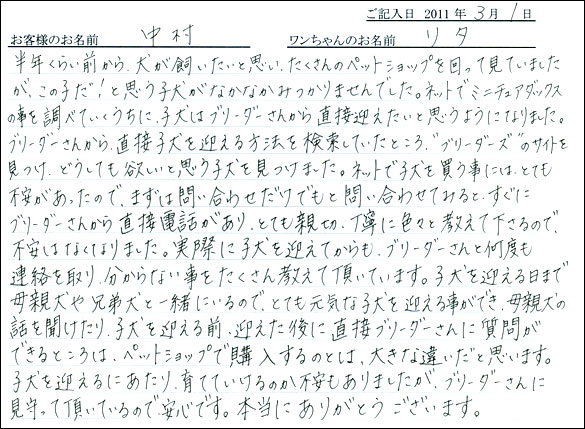 ご記入日 2011年 3月 1日
お客様のお名前 中村 ワンちゃんのお名前 リタ
半年くらい前から、犬が飼いたいと思い、たくさんのペットショップを回って見ていました
が、この子だ！と思う子犬がなかなかみつかりませんでした。ネットでミニチュアダックス
の事を調べていくうちに、子犬はブリーダーさんから直接迎えたいと思うようになりました。
ブリーダーさんから、直接子犬を迎える方法を検索していたところ、"ブリーダーズ"のサイトを
見つけ、どうしても欲しいと思う子犬を見つけました。ネットで子犬を買う事には、とても
不安があったので、まずは問い合わせだけでもと問い合わせてみると、すぐに
ブリーダーさんから直接電話があり、とても親切、丁寧に色々と教えて下さるので、
不安はなくなりました。実際に子犬を迎えてからも、ブリーダーさんと何度も
連絡を取り、分からない事をたくさん教えて頂いています。子犬を迎える日まで
母親犬や兄弟犬と一緒にいるので、とても元気な子犬を迎える事ができ、母親犬の
話を聞けたり、子犬を迎える前、迎えた後に直接ブリーダーさんに質問が
できるところは、ペットショップで購入するのとは、大きな違いだと思います。
子犬を迎えるにあたり、育てていけるのか不安もありましたが、ブリーダーさんに
見守って頂いているので安心です。本当にありがとうございます。